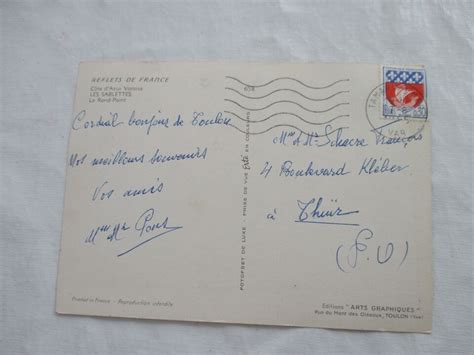 REFLETS DE FRANCE
Côte d'Azur Varoise
LES SABLETTES
Le Rond-Point
Cordial bonjour de Toulon
Nos meilleurs souvenirs
Vos amis
Mme Mr Pons
Printed in France - Reproduction interdite
PHOTOFEET DE LUXE - PRISE DE VUE EN COULEURS
VAR
Mme & Mr François
4 Boulevard Kléber
à Thuir
(P.O)
Editions "ARTS GRAPHIQUES"
Rue du Mont des Oiseaux, TOULON (Var)